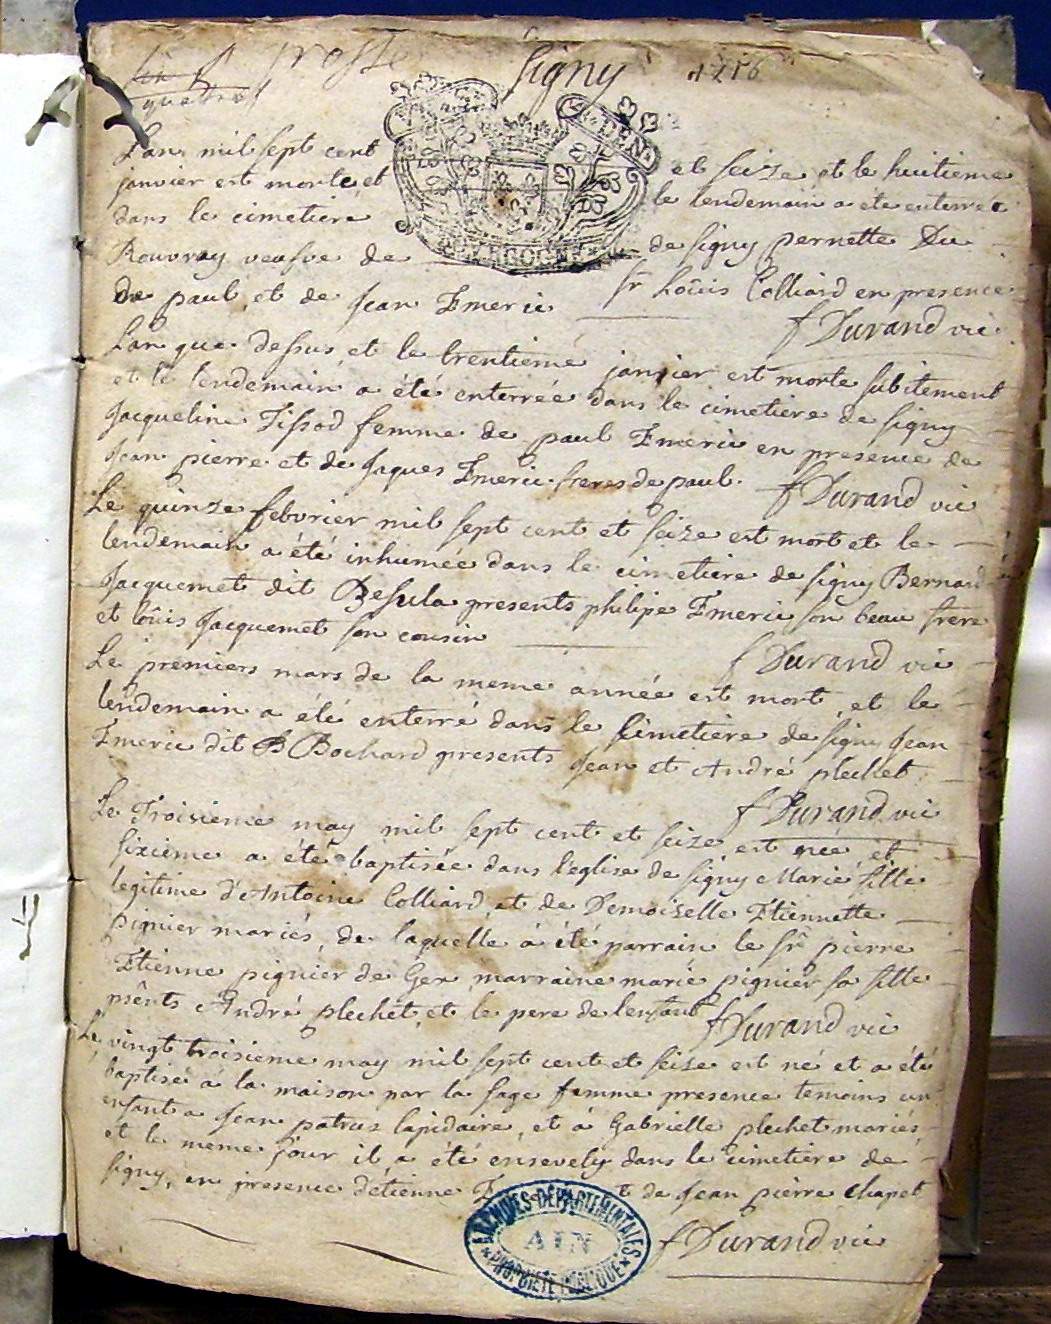 grosse Signy 1716
quatre
L'an mil sept cent et seize et le huitieme
janvier est morte et le lendemain a été enterrée
dans le cimetiere de signy pernette Du
Rouvray veufve de sr Loüis Colliard en presence
De paul et de Jean Emeric
f Durand vic
L'an que dessus et le trentieme janvier est morte subitement
et le lendemain a été enterrée dans le cimetiere de signy
Jacqueline Tissod femme de paul Emeric en presence de
Jean pierre et de Jaques Emeric freres de paul. f Durand vic
Le quinze febvrier mil sept cent et seize est mort et le
lendemain a été inhumée dans le cimetiere de signy Bernard
Jacquemet dit Desula presents philipe Emeric son beau frere
et loüis Jacquemet son cousin f Durand vic
Le premiers mars de la meme année est mort, et le
lendemain a été enterré dans le simetiere de signy Jean
Emeric dit B Bochard presents Jean et André plechet
f Durand vic
Le Troisieme may mil sept cent et seize est née et
sixieme a été baptisée dans l'eglise de signy Marie fille
legitime d'Antoine Colliard et de Demoiselle Etiennette
pignier mariés, de laquelle a été parrain le sr pierre
Etienne pignier de Gex marraine marie pignier sa fille
psents André plechet et le pere de lenfant f Durand vic
Le vingt troisieme may mil sept cent et seize est né et a été
baptisé a la maison par la sage femme presence temoins un
enfant a Jean patrus lapidaire, et a Gabrielle plechet mariés
et le meme jour il a été ensevely dans le cimetiere de
signy, en presence d'etienne et de Jean pierre Chapet
f Durand vic
GEN
BOURGOGNE
ARCHIVES DÉPARTEMENTALES
AIN
PROPRIÉTÉ PUBLIQUE